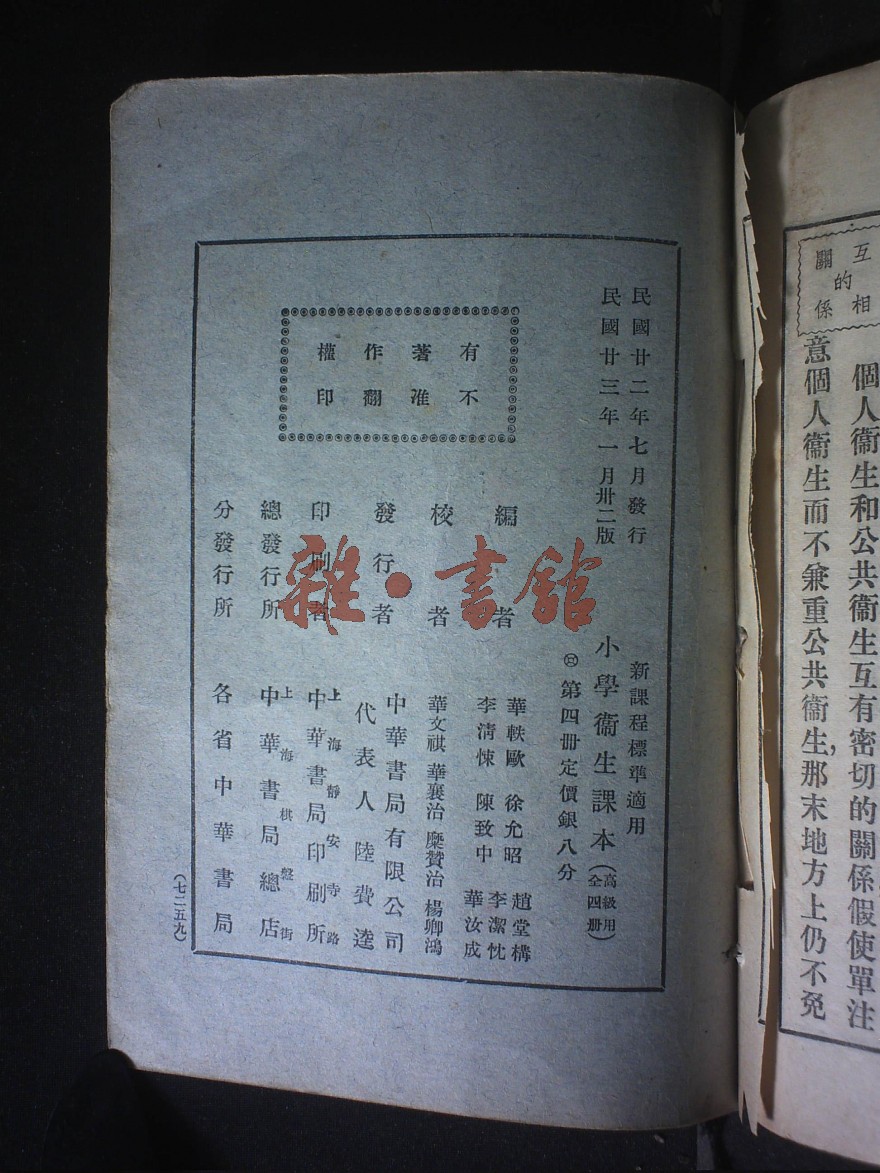 互相
的
關係
個人衞生和公共衞生互有密切的關係假使單注
意個人衞生而不兼重公共衞生，那末地方上仍不免
民國廿二年七月發行
民國廿三年一月卅二版
新課程標準適用
小學衞生課本（高級用全四册）
第四册定價銀八分
編者
華軼歐 徐允昭 趙堂構
李清悚 陳致中 李潔忱
華汝成
校者
華文祺 華襄治 糜贊治 楊卿鴻
發行者
中華書局有限公司
代表人 陸費逵
印刷者
上海靜安寺路
中華書局印刷所
總發行所
上海棋盤街
中華書局總店
分發行所
各省中華書局
有著作權
不准翻印
（七二五九）
雜·書館